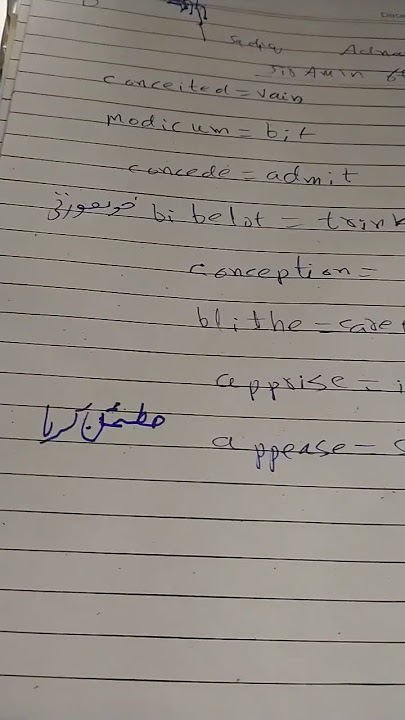 Sadia Adna
Sir Amin
conceited = vain
Modicum = bit
concede = admit
bibelot = trink
conception =
blithe = care
apprise = i
مطمئن کرنا appease =